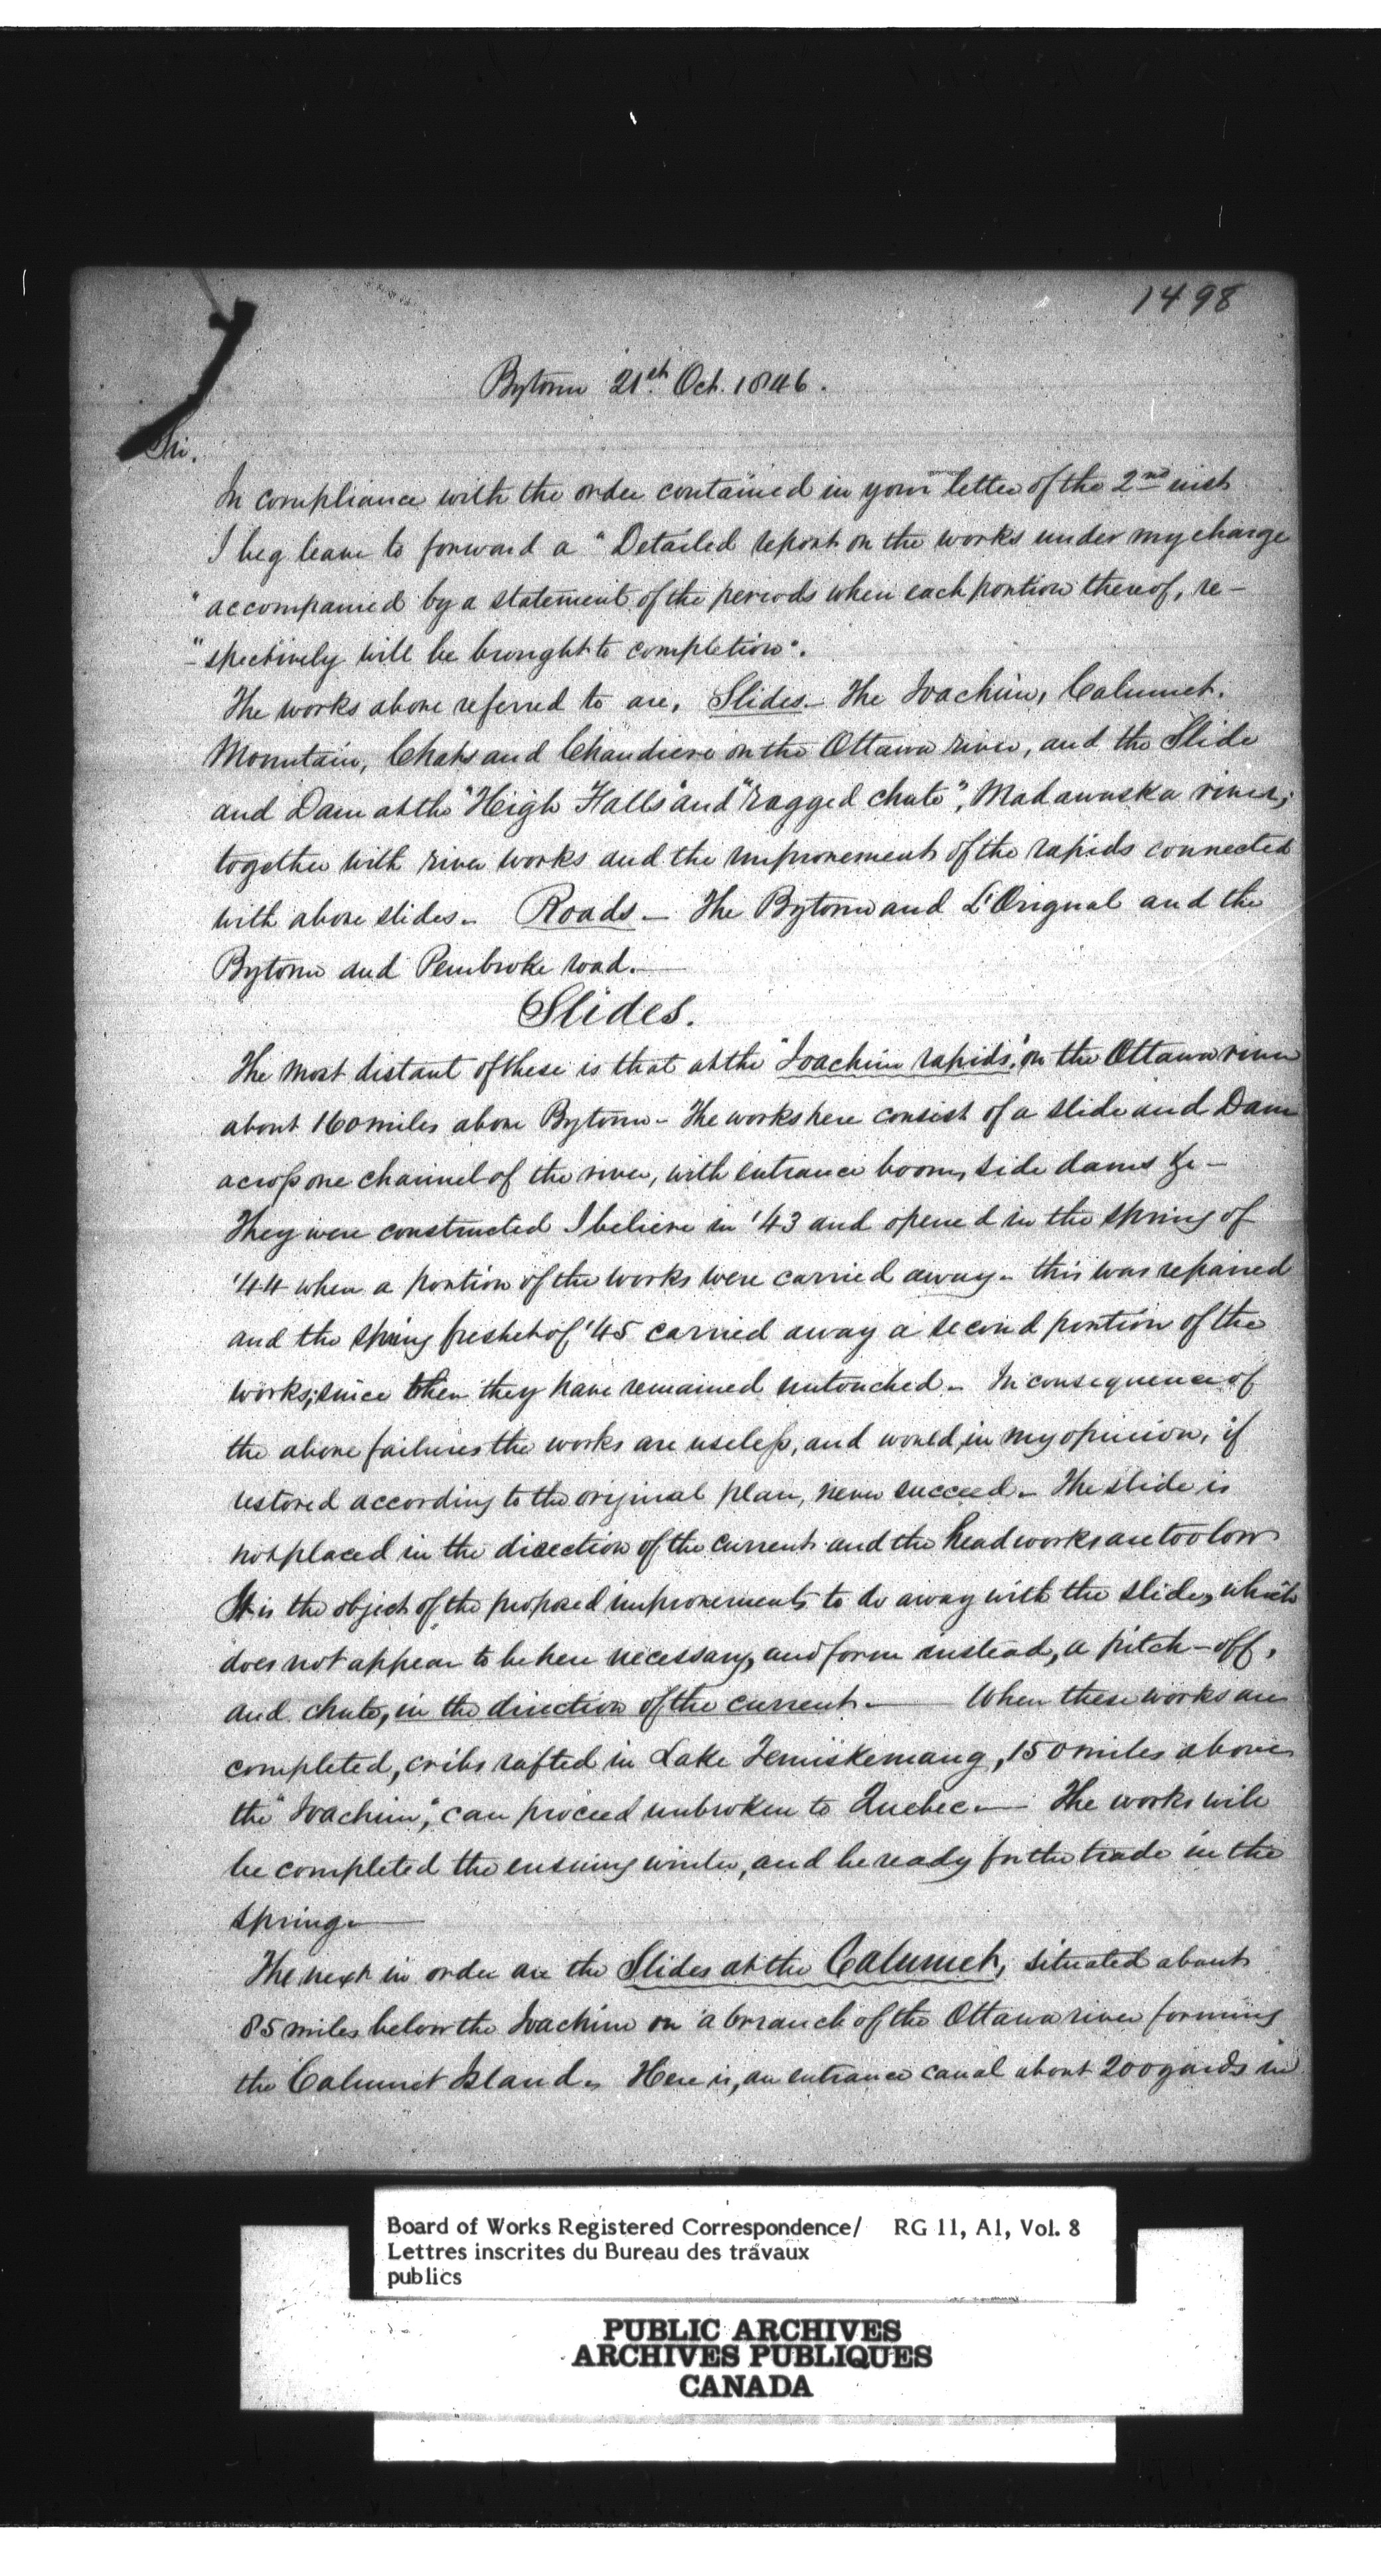 1498
Bytown 21st. Oct. 1846.
Sir.
In compliance with the order contained in your letter of the 2nd inst
I beg leave to forward a "Detailed report on the works under my charge
"accompanied by a statement of the periods when each portion thereof, re-
"spectively will be brought to completion".
The works above referred to are, Slides- The Joachim, Calumet.
Mountain, Chats and Chaudiere on the Ottawa river, and the Slide
and Dam at the "Heigh Falls" and "ragged chute", Madawaska river;
together with river works and the improvements of the rapids connected
with above slides- Roads- The Bytown and L'Orignal and the
Bytown and Pembroke road.-
Slides.
The most distant of these is that at the "Joachim rapids," on the Ottawa river
about 160 miles above Bytown- The works here consist of a slide and Dam
across one channel of the river, with entrance boom, side dams &c-
They were constructed I believe in '43 and opened in the spring of
'44 when a portion of the works were carried away- this was repaired
and the spring freshet of '45 carried away a second portion of the
works; since then they have remained untouched- In consequence of
the above failures the works are useless, and would, in my opinion, if
restored according to the original plan, never succeed- The slide is
not placed in the direction of the current and the head works are too low
It is the object of the proposed improvements to do away with the slide, which
does not appear to be here necessary, and form instead, a pitch-off,
and chute, in the direction of the current.- When these works are
completed, cribs rafted in Lake Temiskemang, 150 miles above
the "Joachim", can proceed unbroken to Quebec.- The works will
be completed the ensuing winter, and be ready for the trade in the
spring.-
The next in order are the Slides at the Calumet, situated about
85 miles below the Joachim on a branch of the Ottawa river forming
the Calumet Island- Here is, an entrance canal about 200 yards in
Board of Works Registered Correspondence/ RG 11, A1, Vol. 8
Lettres inscrites du Bureau des travaux
publics
PUBLIC ARCHIVES
ARCHIVES PUBLIQUES
CANADA